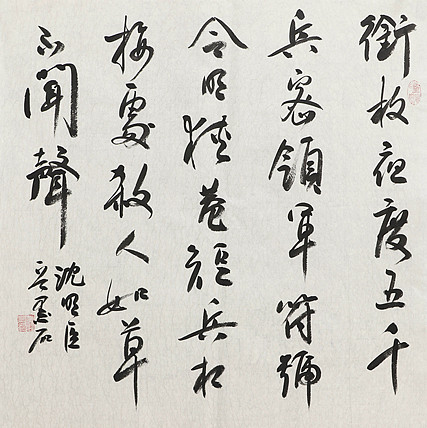 銜枚夜度五千
兵密領軍符號
令明狹巷短兵相
接處殺人如草
不聞聲
沈明臣
墨石